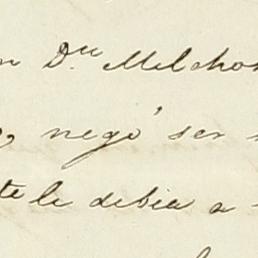 n Dn. Melchor
negó ser
te le debia a